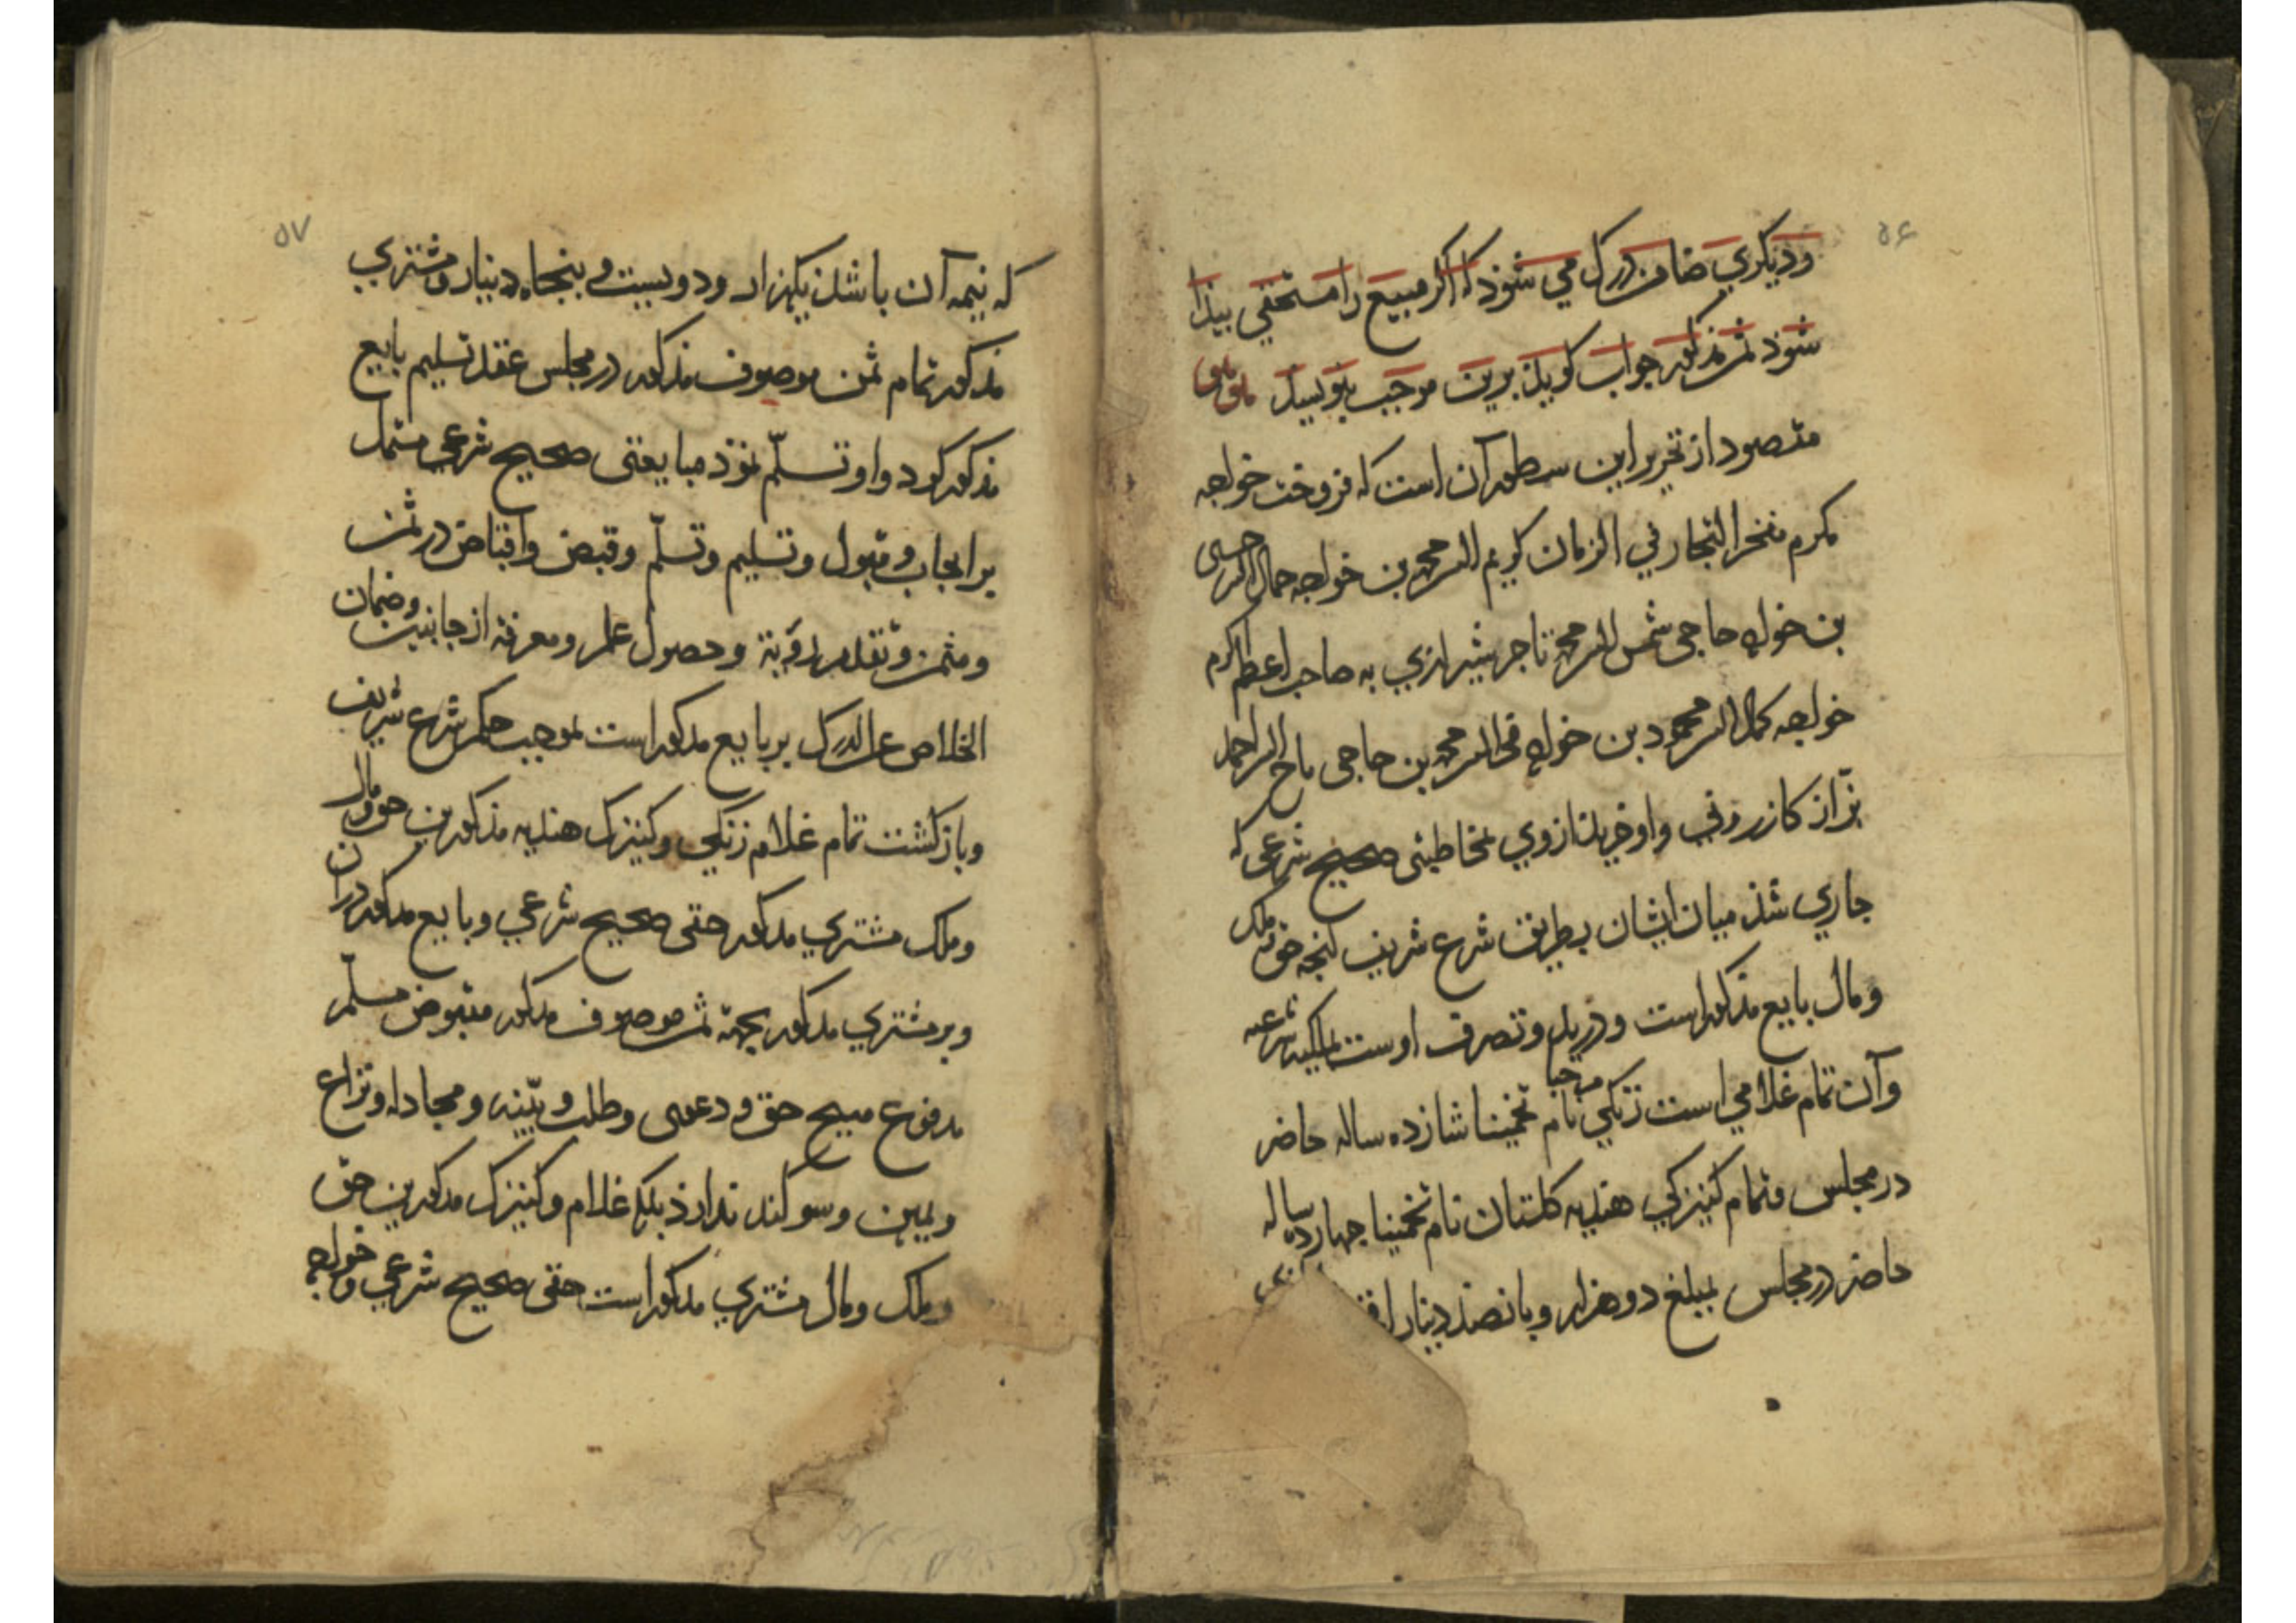 ۵۶
و دیکری ضامن درک می شوذ که اکر مبیع را مستحقی بیذا
شوذ ثمن مذکور جواب کویذ برین موجب بنویسد
مقصود از تحریر این سطور آن است که فروخت خواجه
مکرم مفخر التجار فی الزمان کریم الدین محمد بن خواجه جمال الدین حسین
بن خواجه حاجی شمس الدین محمد تاجر شیرازی به صاحب اعظم اکرم
خواجه کمال الدین محمود بن خواجه الدین محمد بن حاجی تاج الدین احمد
بزّاز کازرونی و او خریذ از وی بمخاطبتی صحیح شرعی که
جاری شذ میان ایشان بطریق شرع شریف آنچه حق و ملک
و مال بایع مذکور است و در ید و تصرف اوست بملکیه شرعیه
و آن تمام غلامی است زنکی مرحبا نام تخمینا شانزده ساله حاضر
در مجلس و تمام کنیزکی هندیه کلستان نام تخمینا جهارده ساله
حاضر در مجلس بمبلغ دو هزار و بانصذ دینار
۵۷
که نیمه آن باشذ یکهزار و دویست و بنجاه دینار و مشتری
مذکور تمام ثمن موصوف مذکور در مجلس عقد تسلیم بایع
مذکور کرد و او تسلّم نموذ مبایعتی صحیح شرعی مشتمل
بر ایجاب و قبول و تسلیم و تسلّم و قبض و اقباض در ثمن
و مثمن و تقدم رؤیة و حصول علم و معرفة از جانبین و ضمان
الخلاص عن الدرک بر بایع مذکور است بموجب حکم شرع شریف
و بازکشت تمام غلام زنکی و کنیزک هندیه مذکورین حق و مال
و ملک مشتری مذکور حقی صحیح شرعی و بایع مذکور را در آن
و بر مشتری مذکور بجهة ثمن موصوف مذکور مقبوض مسلّم
مدفوع هیچ حق و دعوی و طلب و بیّنه و مجادله و نزاع
و یمین و سوکند ندارذ بلکه غلام و کنیزک مذکورین حق
و ملک و مال مشتری مذکور است حقی صحیح شرعی و خواجه